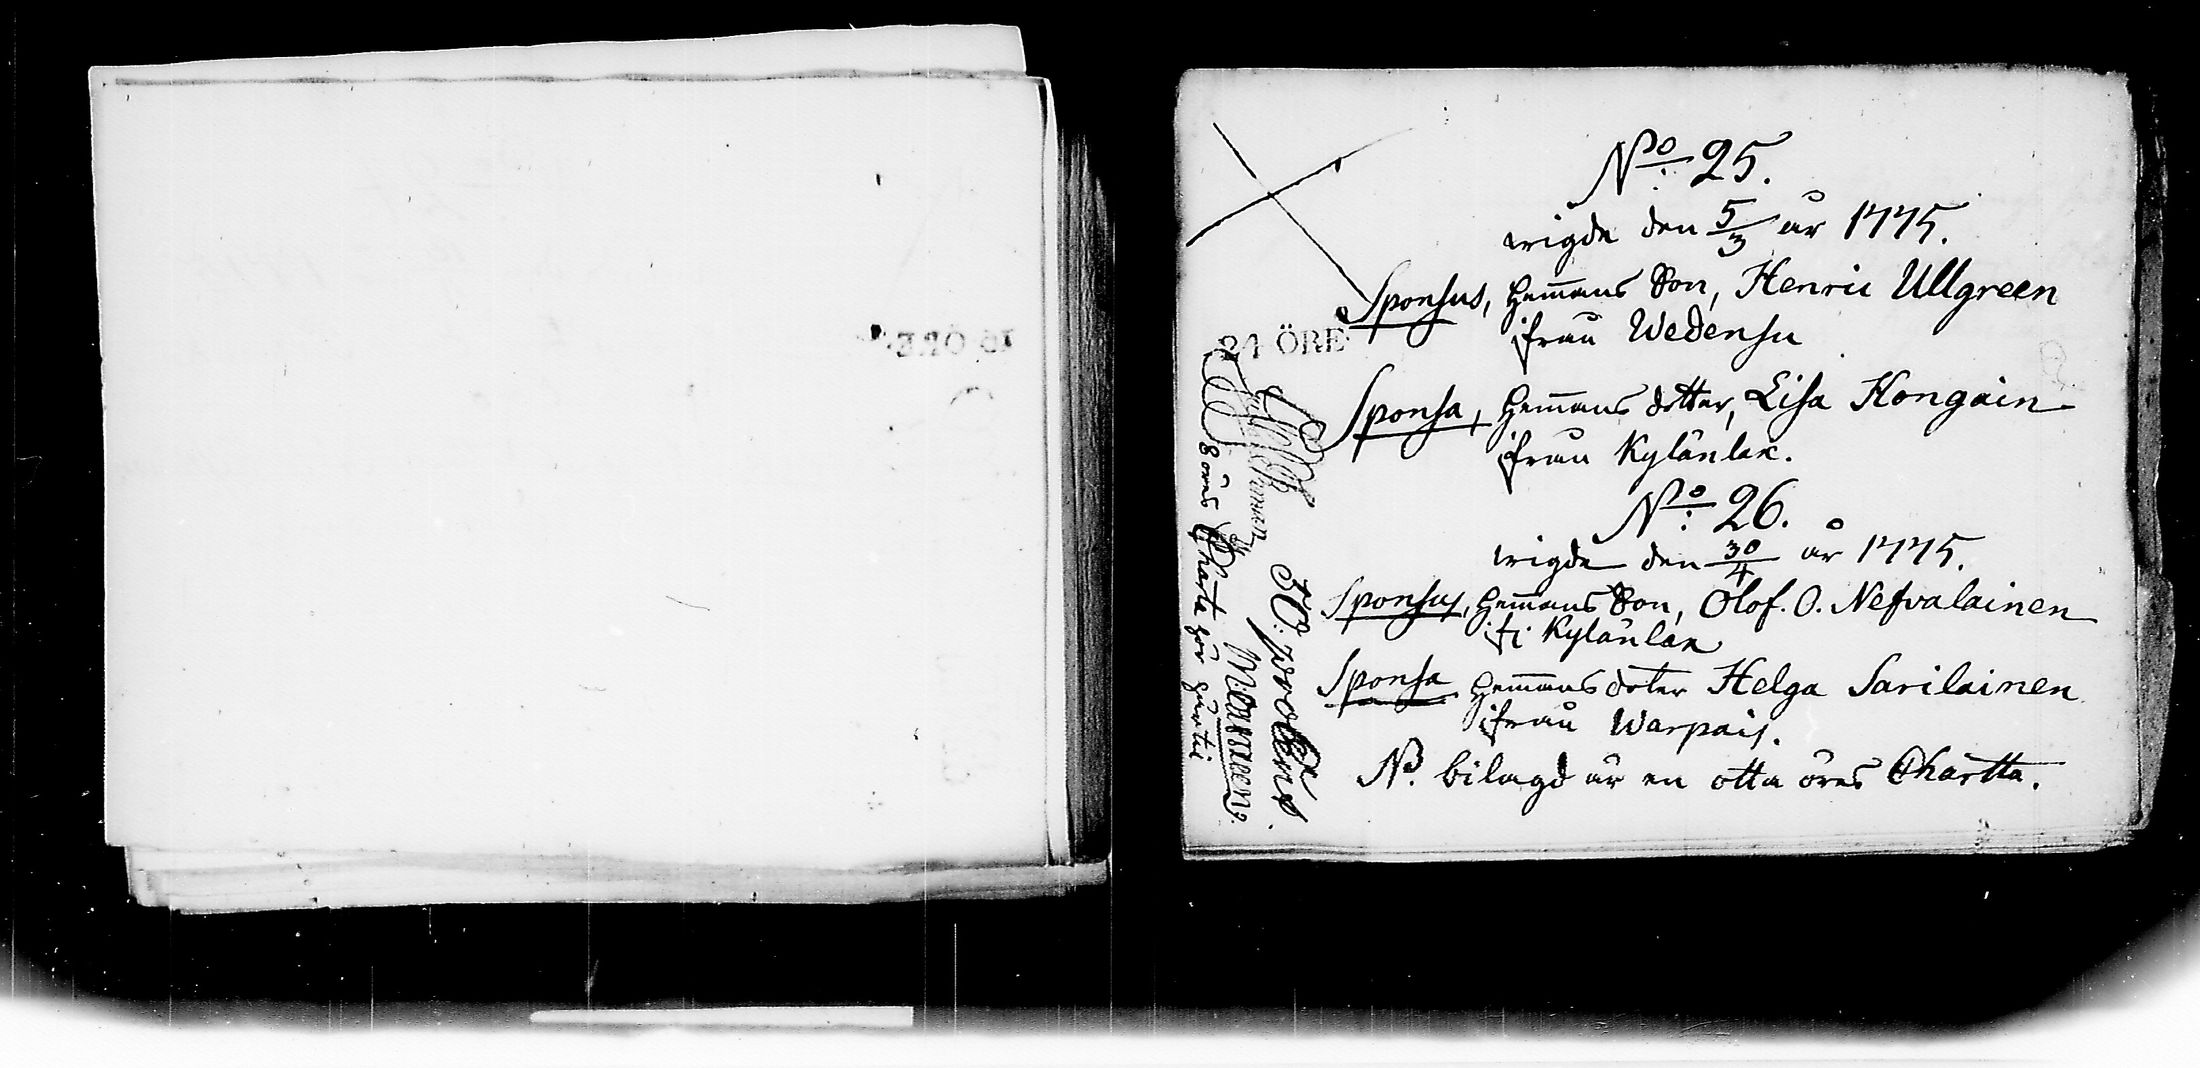 No 25.
wigde den 5/3 år 1775.
Sponsus, Hem̄ans Son, Henric Ullgreen
ifrån Wedensu
24 ÖRE
Sponsa, Hem̄ans dotter, Lisa Kongain
ifrån Kylänlax.
No 26.
wigde den 30/4 år 1775.
Sponsus, Hem̄ans Son, Olof. O. Nefvalainen
if: Kylänlax
Sponsa Hem̄ans doter Helga Sarilainen
ifrån Warpais.
NB. bilagd är en otta öres Chartta.
8 öres Charta här